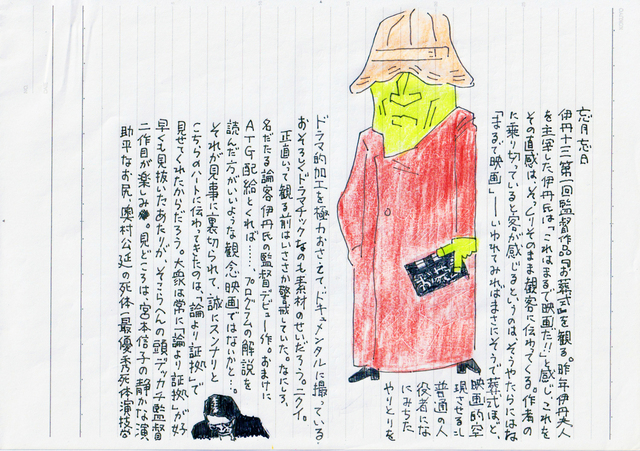 忘月忘日
伊丹十三第一回監督作品『お葬式』を観る。昨年伊丹夫人
を主宰した伊丹氏は、「これはまるで映画だ!!」と感じ、これを
その直感は、そっくりそのまま観客に伝わってくる。作者の
に乗り切っていると客が感じるというのは、そうやたらにはな
「まるで映画」――いわれてみればまさにそうで葬式ほど、
映画的空
現させる
普通の人
役者にな
にみちた
やりとりを
ドラマ的加工を極力おさえて、ドキュメンタルに撮っている。
おそろしくドラマチックなのも素材のせいだろう。ニクイ。
正直いって観る前はいささか警戒していた。なにしろ、
名だたる論客伊丹氏の監督デビュー作。おまけに
ATG配給とくれば……、プログラムの解説を
読んだ方がいいような観念映画ではないかと…。
それが見事に裏切られて、誠にスンナリと
こちらのハートに伝わってきたのは、「論より証拠」で
見せてくれたからだろう。大衆は常に「論より証拠」が好
早くも見抜いたあたりが、そこらへんの頭デッカチ監督
二作目が楽しみ。見どころは、宮本信子の静かな演
助平なお尻、奥村公延の死体(最優秀死体演技賞
お葬式